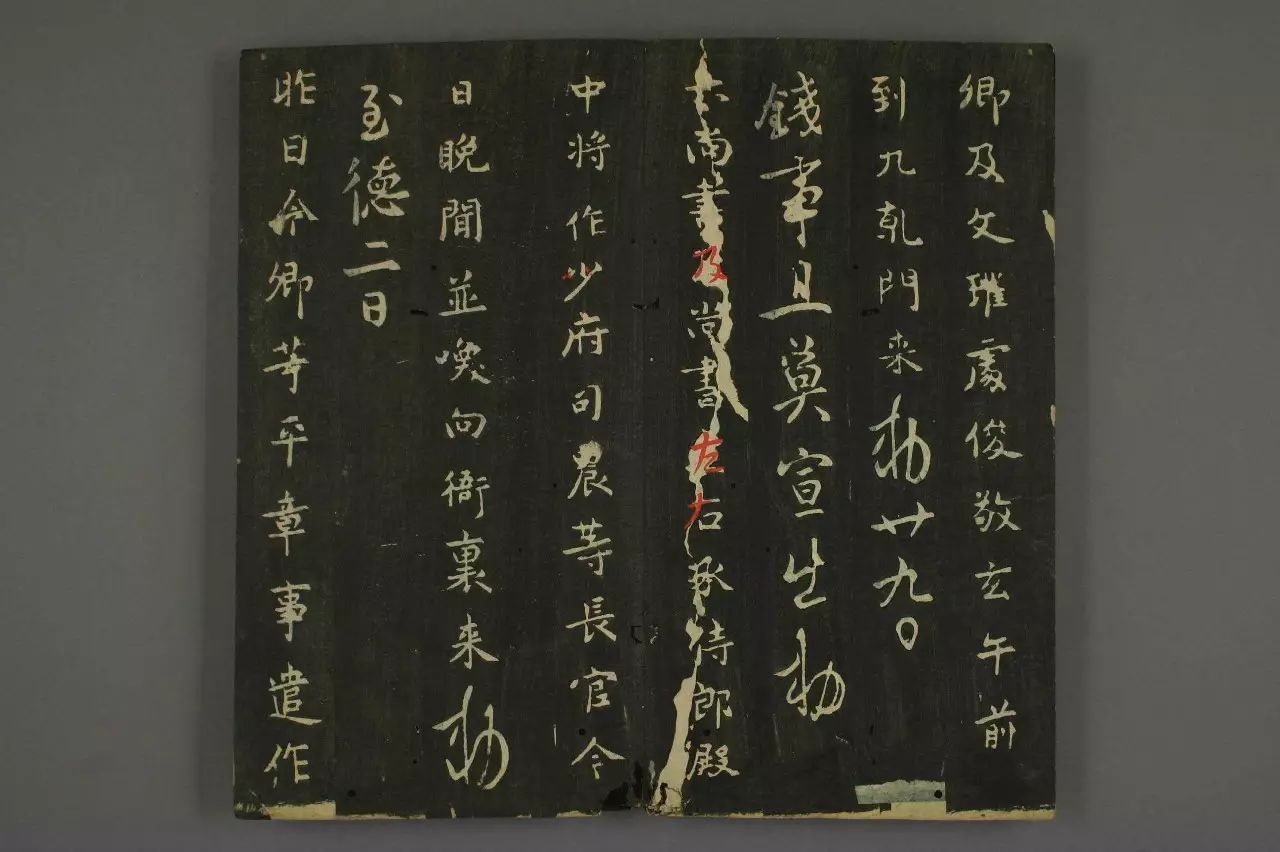 卿及文瓘處俊敬玄午前
到九乹門来勅廿九日
錢事且莫宣出勅
六尚書及尚書左右丞侍郎殿
中将作少府司農等長官今
日晚間並喚向衙裏来勅
至德二日
昨日令卿等平章事遣作